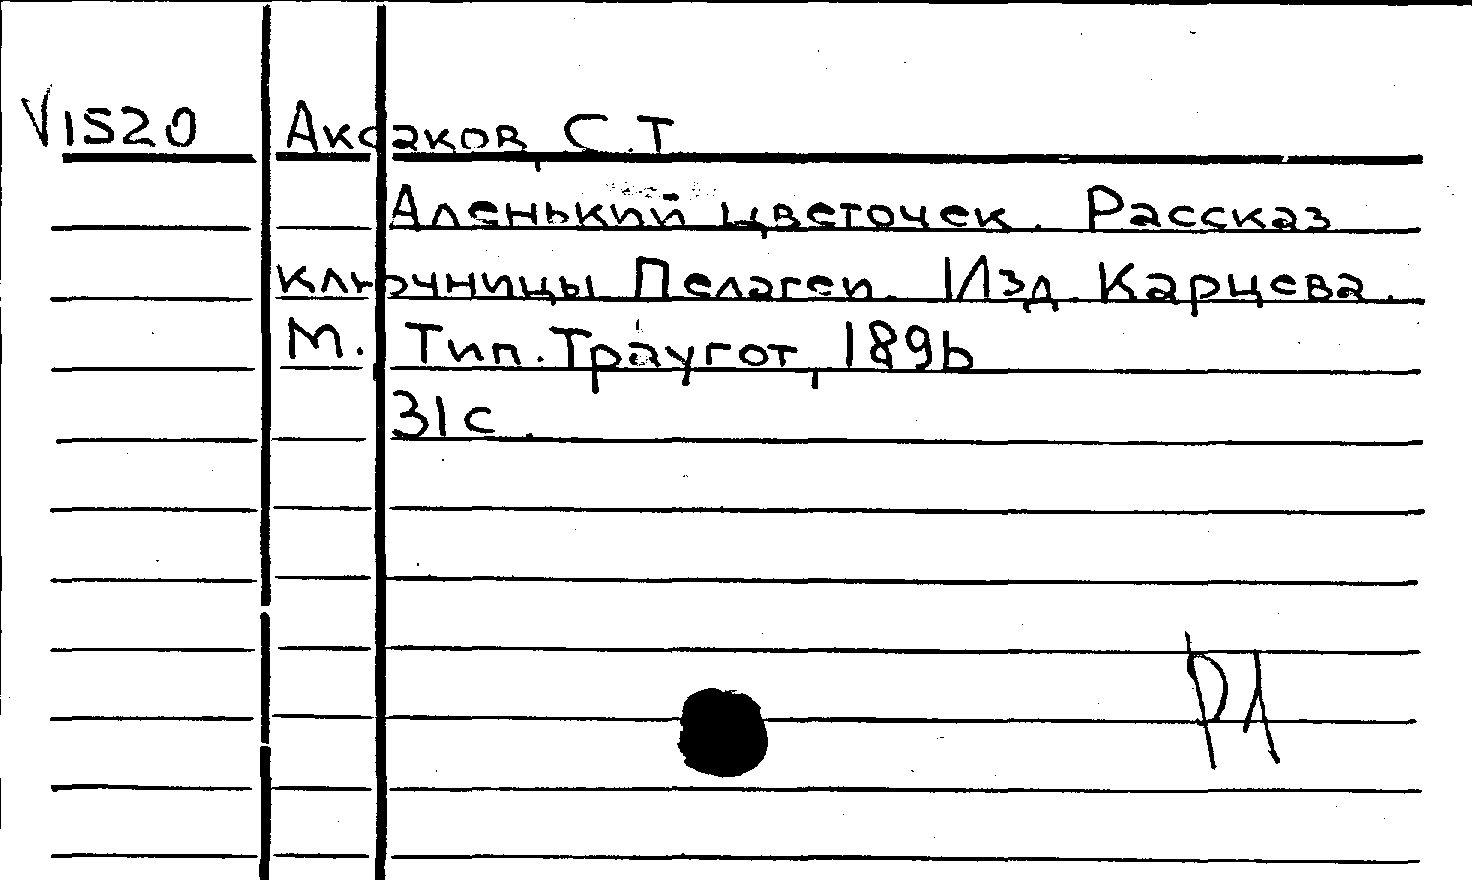 V1520 Аксаков, С.Т
Аленький цветочек. Рассказ
ключницы Пелагеи. Изд. Карцева.
М. Тип. Траугот, 1896
31 с.
РЛ